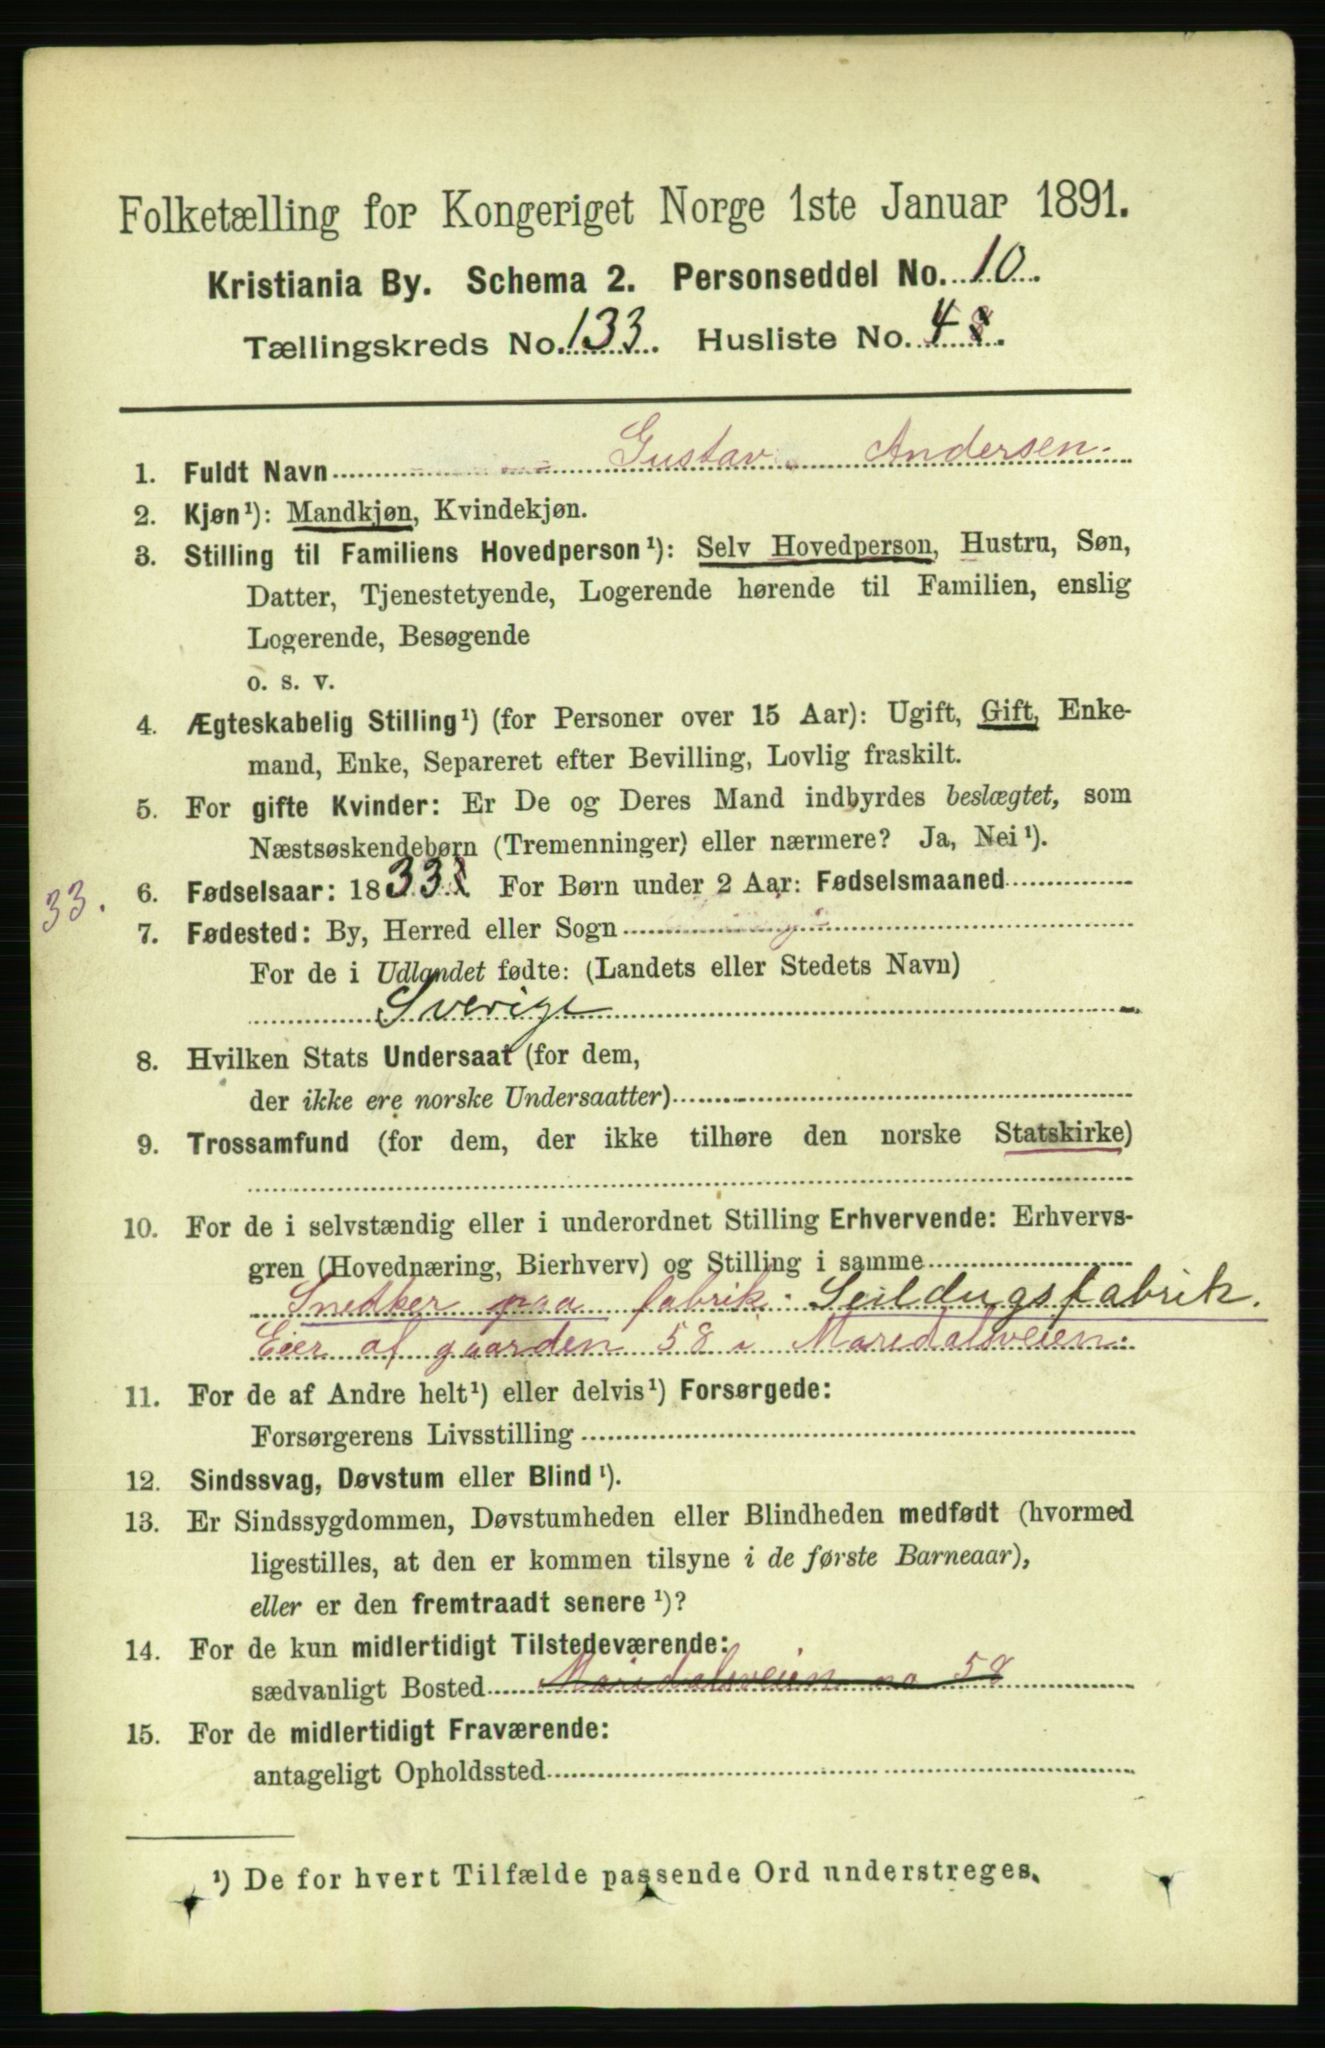 Folketælling for Kongeriget Norge 1ste Januar 1891.
Kristiania By. Schema 2. Personseddel No. 10.
Tællingskreds No. 133. Husliste No. 4
1. Fuldt Navn Gustav Andersen.
2. Kjøn¹): Mandkjøn, Kvindekjøn.
3. Stilling til Familiens Hovedperson¹): Selv Hovedperson, Hustru, Søn,
Datter, Tjenestetyende, Logerende hørende til Familien, enslig
Logerende, Besøgende
o. s. v.
4. Ægteskabelig Stilling¹) (for Personer over 15 Aar): Ugift, Gift, Enke-
mand, Enke, Separeret efter Bevilling, Lovlig fraskilt.
5. For gifte Kvinder: Er De og Deres Mand indbyrdes beslægtet, som
Næstsøskendebørn (Tremenninger) eller nærmere? Ja, Nei¹).
33. 6. Fødselsaar: 1833 For Børn under 2 Aar: Fødselsmaaned
7. Fødested: By, Herred eller Sogn
For de i Udlandet fødte: (Landets eller Stedets Navn)
Sverige
8. Hvilken Stats Undersaat (for dem,
der ikke ere norske Undersaatter)
9. Trossamfund (for dem, der ikke tilhøre den norske Statskirke)
10. For de i selvstændig eller i underordnet Stilling Erhvervende: Erhvervs-
gren (Hovednæring, Bierhverv) og Stilling i samme
Snedker paa fabrik. Seildugsfabrik.
Eier af gaarden 58 i Maredalsveien.
11. For de af Andre helt¹) eller delvis¹) Forsørgede:
Forsørgerens Livsstilling
12. Sindssvag, Døvstum eller Blind¹).
13. Er Sindssygdommen, Døvstumheden eller Blindheden medfødt (hvormed
ligestilles, at den er kommen tilsyne i de første Barneaar),
eller er den fremtraadt senere¹)?
14. For de kun midlertidigt Tilstedeværende:
sædvanligt Bosted Maridalsveien no 58
15. For de midlertidigt Fraværende:
antageligt Opholdssted
¹) De for hvert Tilfælde passende Ord understreges.